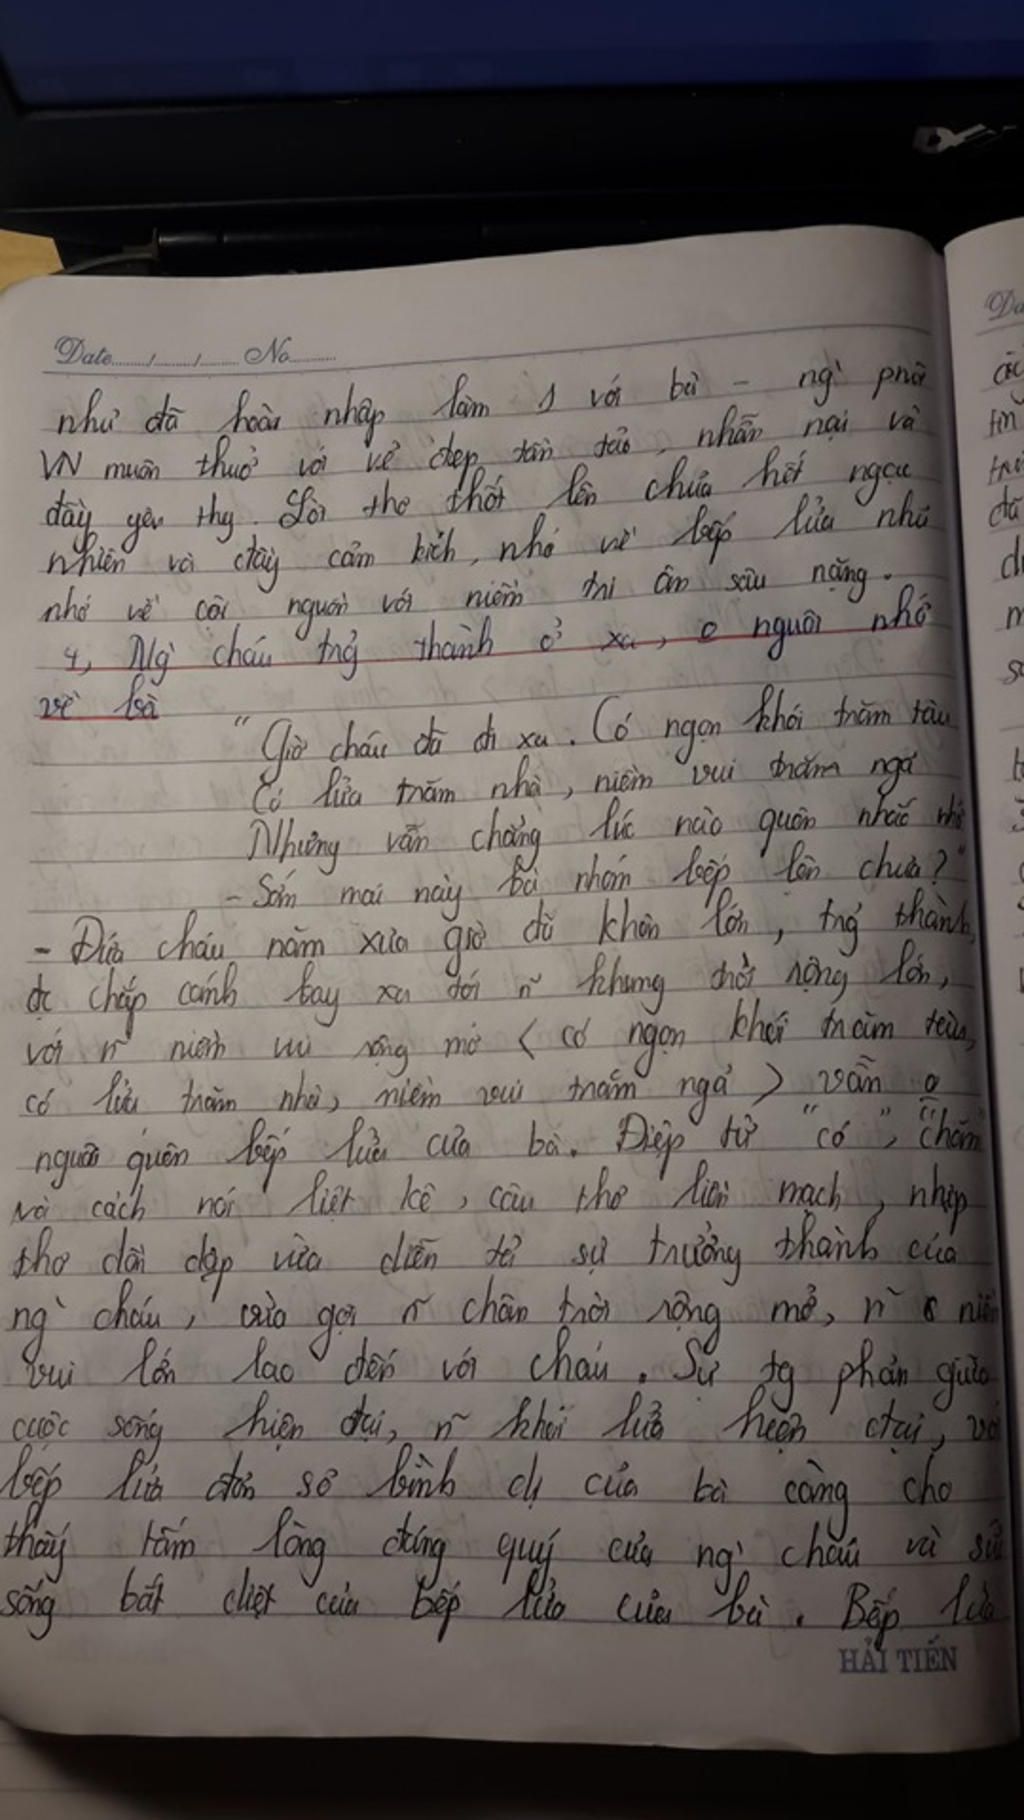 Date....../....../...... No..........
như đã hoàn nhập làm 1 với bà - ng` phụ
VN muôn thuở với vẻ đẹp tần tảo, nhẫn nại và
đầy yêu thg. Lời thơ thốt lên chứa hết ngạc
nhiên và đầy cảm kích, nhớ về bếp lửa như
nhớ về cội nguồn với niềm tri ân sâu nặng.
4, Ng` cháu trg thành ở xa, o nguôi nhớ
về bà
"Giờ cháu đã đi xa. Có ngọn khói trăm tàu
Có lửa trăm nhà, niềm vui trăm ngả
Nhưng vẫn chẳng lúc nào quên nhắc nhở
- Sớm mai này bà nhóm bếp lên chưa?"
- Đứa cháu năm xưa giờ đã khôn lớn, trg thành,
đc chắp cánh bay xa tới n~ khung trời rộng lớn,
với n~ niềm vui rộng mở < có ngọn khói trăm tàu,
có lửa trăm nhà, niềm vui trăm ngả > vẫn o
nguôi quên bếp lửa của bà. Điệp từ "có",
và cách nói liệt kê, câu thơ liền mạch, nhịp
thơ dồn dập vừa diễn tả sự trưởng thành của
ng` cháu, vừa gợi n~ chân trời rộng mở, n~ niềm
vui lớn lao đến với cháu. Sự tg phản giữa
cuộc sống hiện đại, n~ khói lửa hiện đại, với
bếp lửa đơn sơ bình dị của bà càng cho
thấy tấm lòng đáng quý của ng` cháu và sức
sống bất diệt của bếp lửa của bà. Bếp lửa
HẢI TIẾN